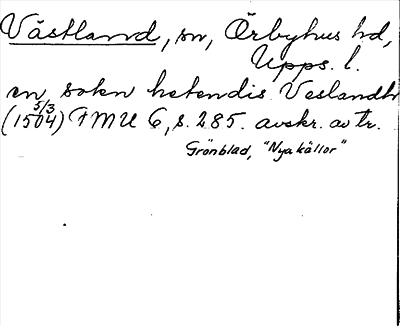 Västland, sn, Örbyhus hd,
Upps. l.
en sokn hetendis Veslandh
(1504 5/3) FMU 6, s. 285. avskr. av tr.
Grönblad, "Nya källor"